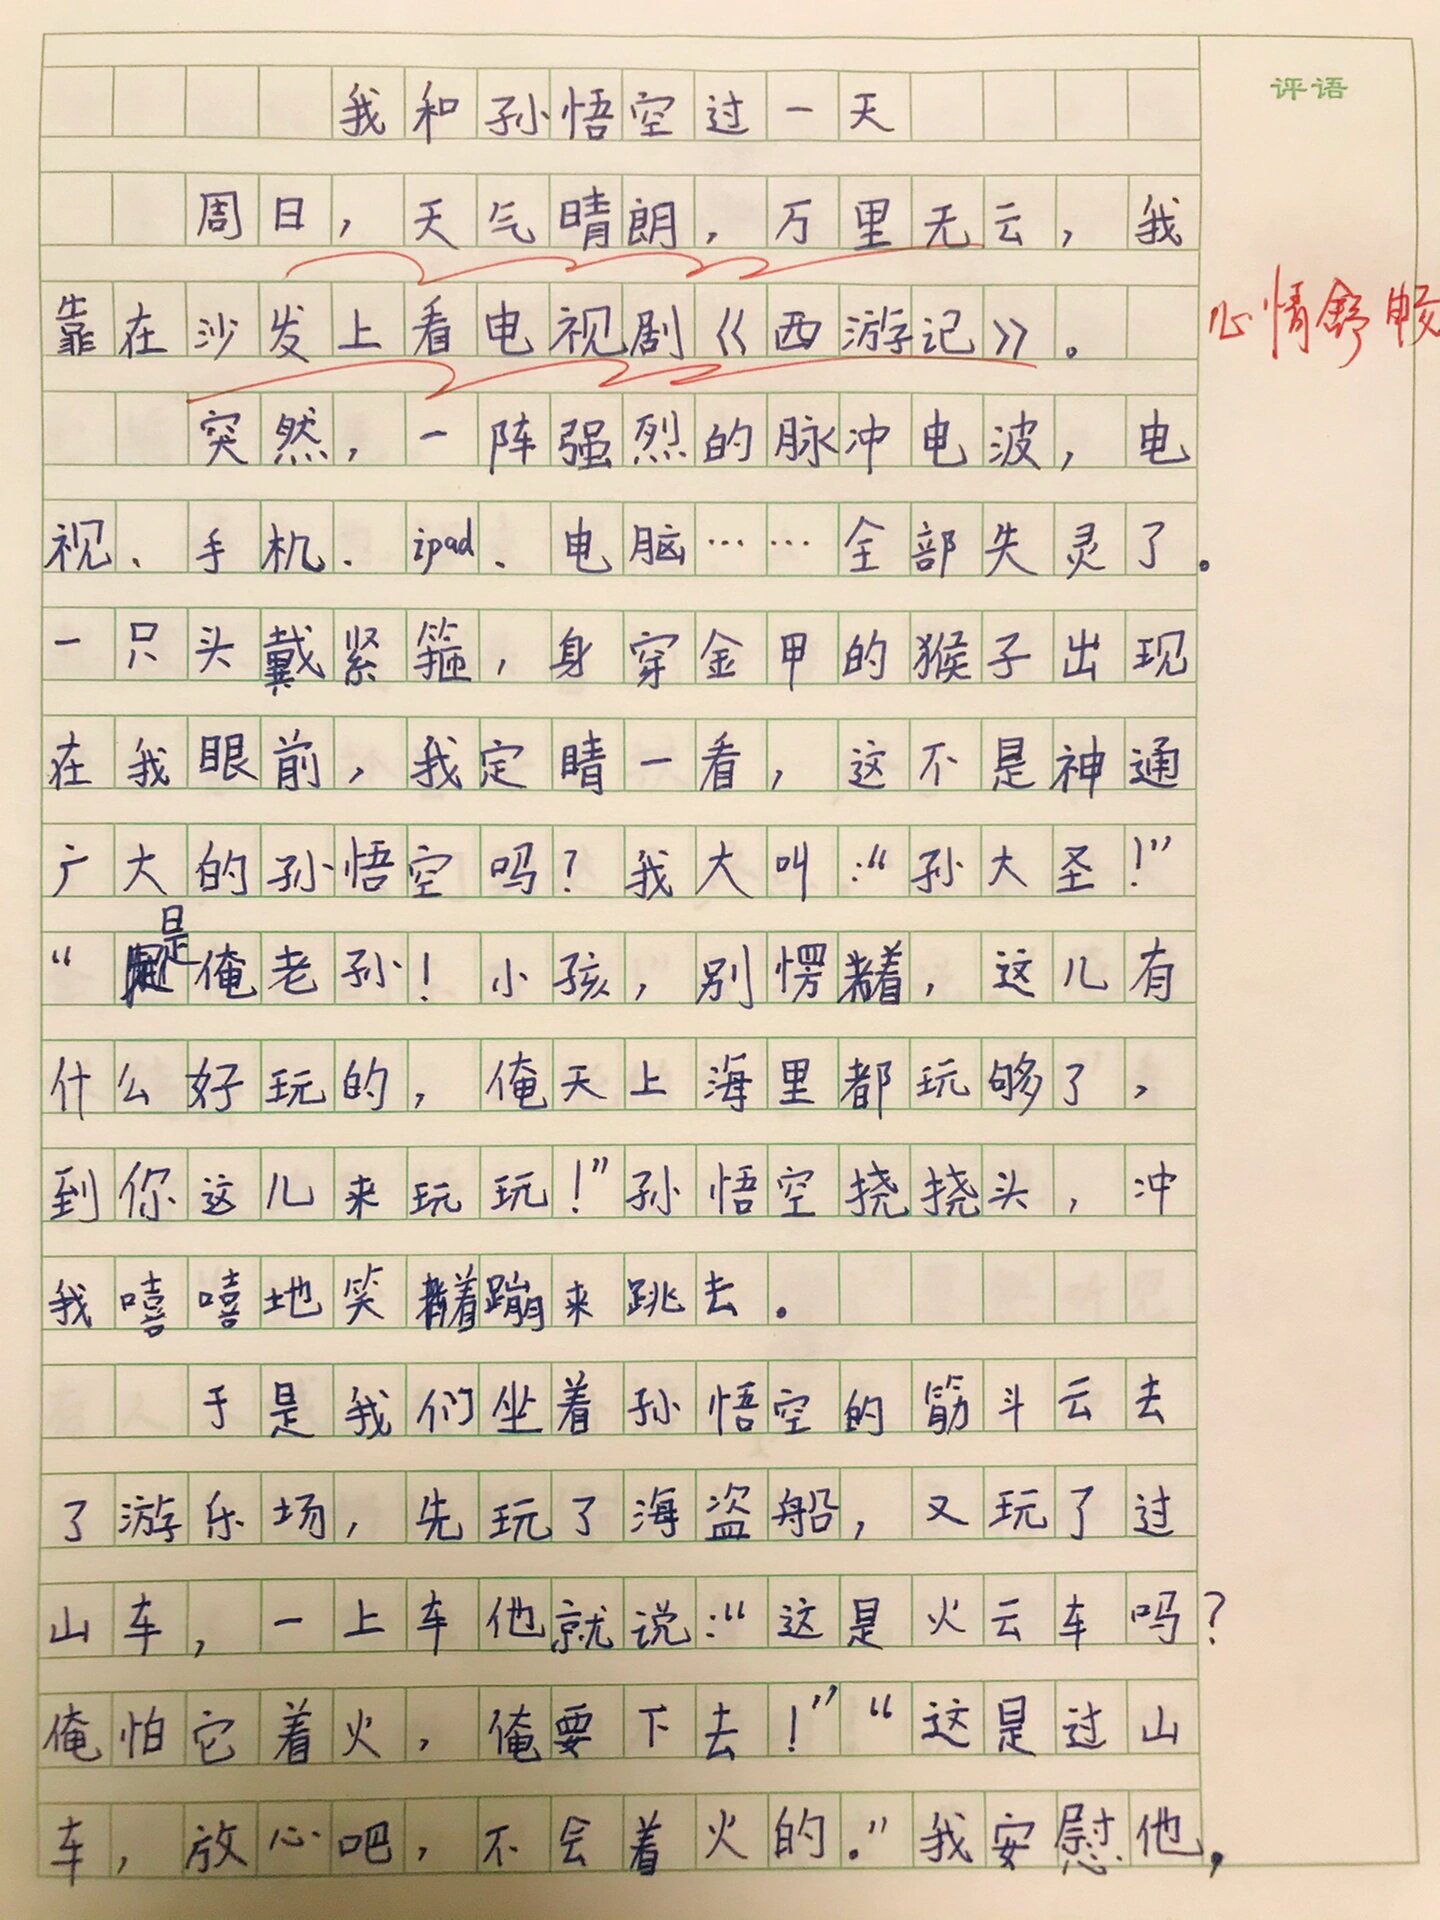 评语
我和孙悟空过一天
周日，天气晴朗，万里无云，我
靠在沙发上看电视剧《西游记》。
心情舒畅
突然，一阵强烈的脉冲电波，电
视、手机、ipad、电脑……全部失灵了。
一只头戴紧箍，身穿金甲的猴子出现
在我眼前，我定睛一看，这不是神通
广大的孙悟空吗？我大叫：“孙大圣！”
“是俺老孙！小孩，别愣着，这儿有
什么好玩的，俺天上海里都玩够了，
到你这儿来玩玩！”孙悟空挠挠头，冲
我嘻嘻地笑着蹦来跳去。
于是我们坐着孙悟空的筋斗云去
了游乐场，先玩了海盗船，又玩了过
山车，一上车他就说：“这是火云车吗？
俺怕它着火，俺要下去！”“这是过山
车，放心吧，不会着火的。”我安慰他，